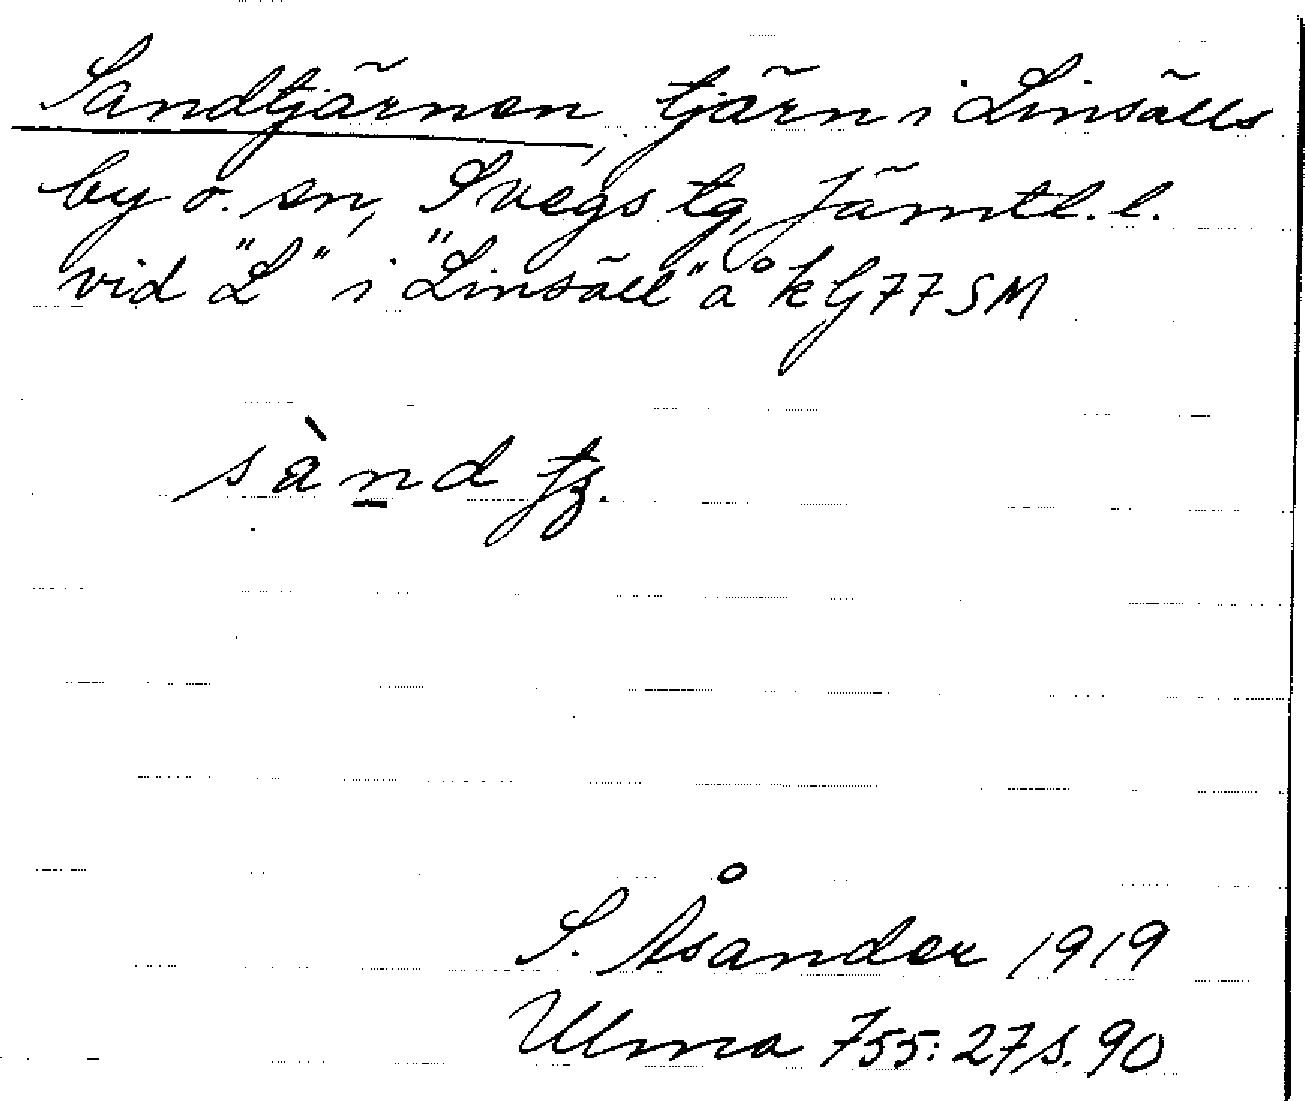 Sandtjärnen, tjärn i Linsälls
by o. sn, Svegs tg, Jämtl. l.
vid "L" i "Linsäll" å kG77SM
sànd
S. Åsander 1919
Ulma 755:27 s. 90